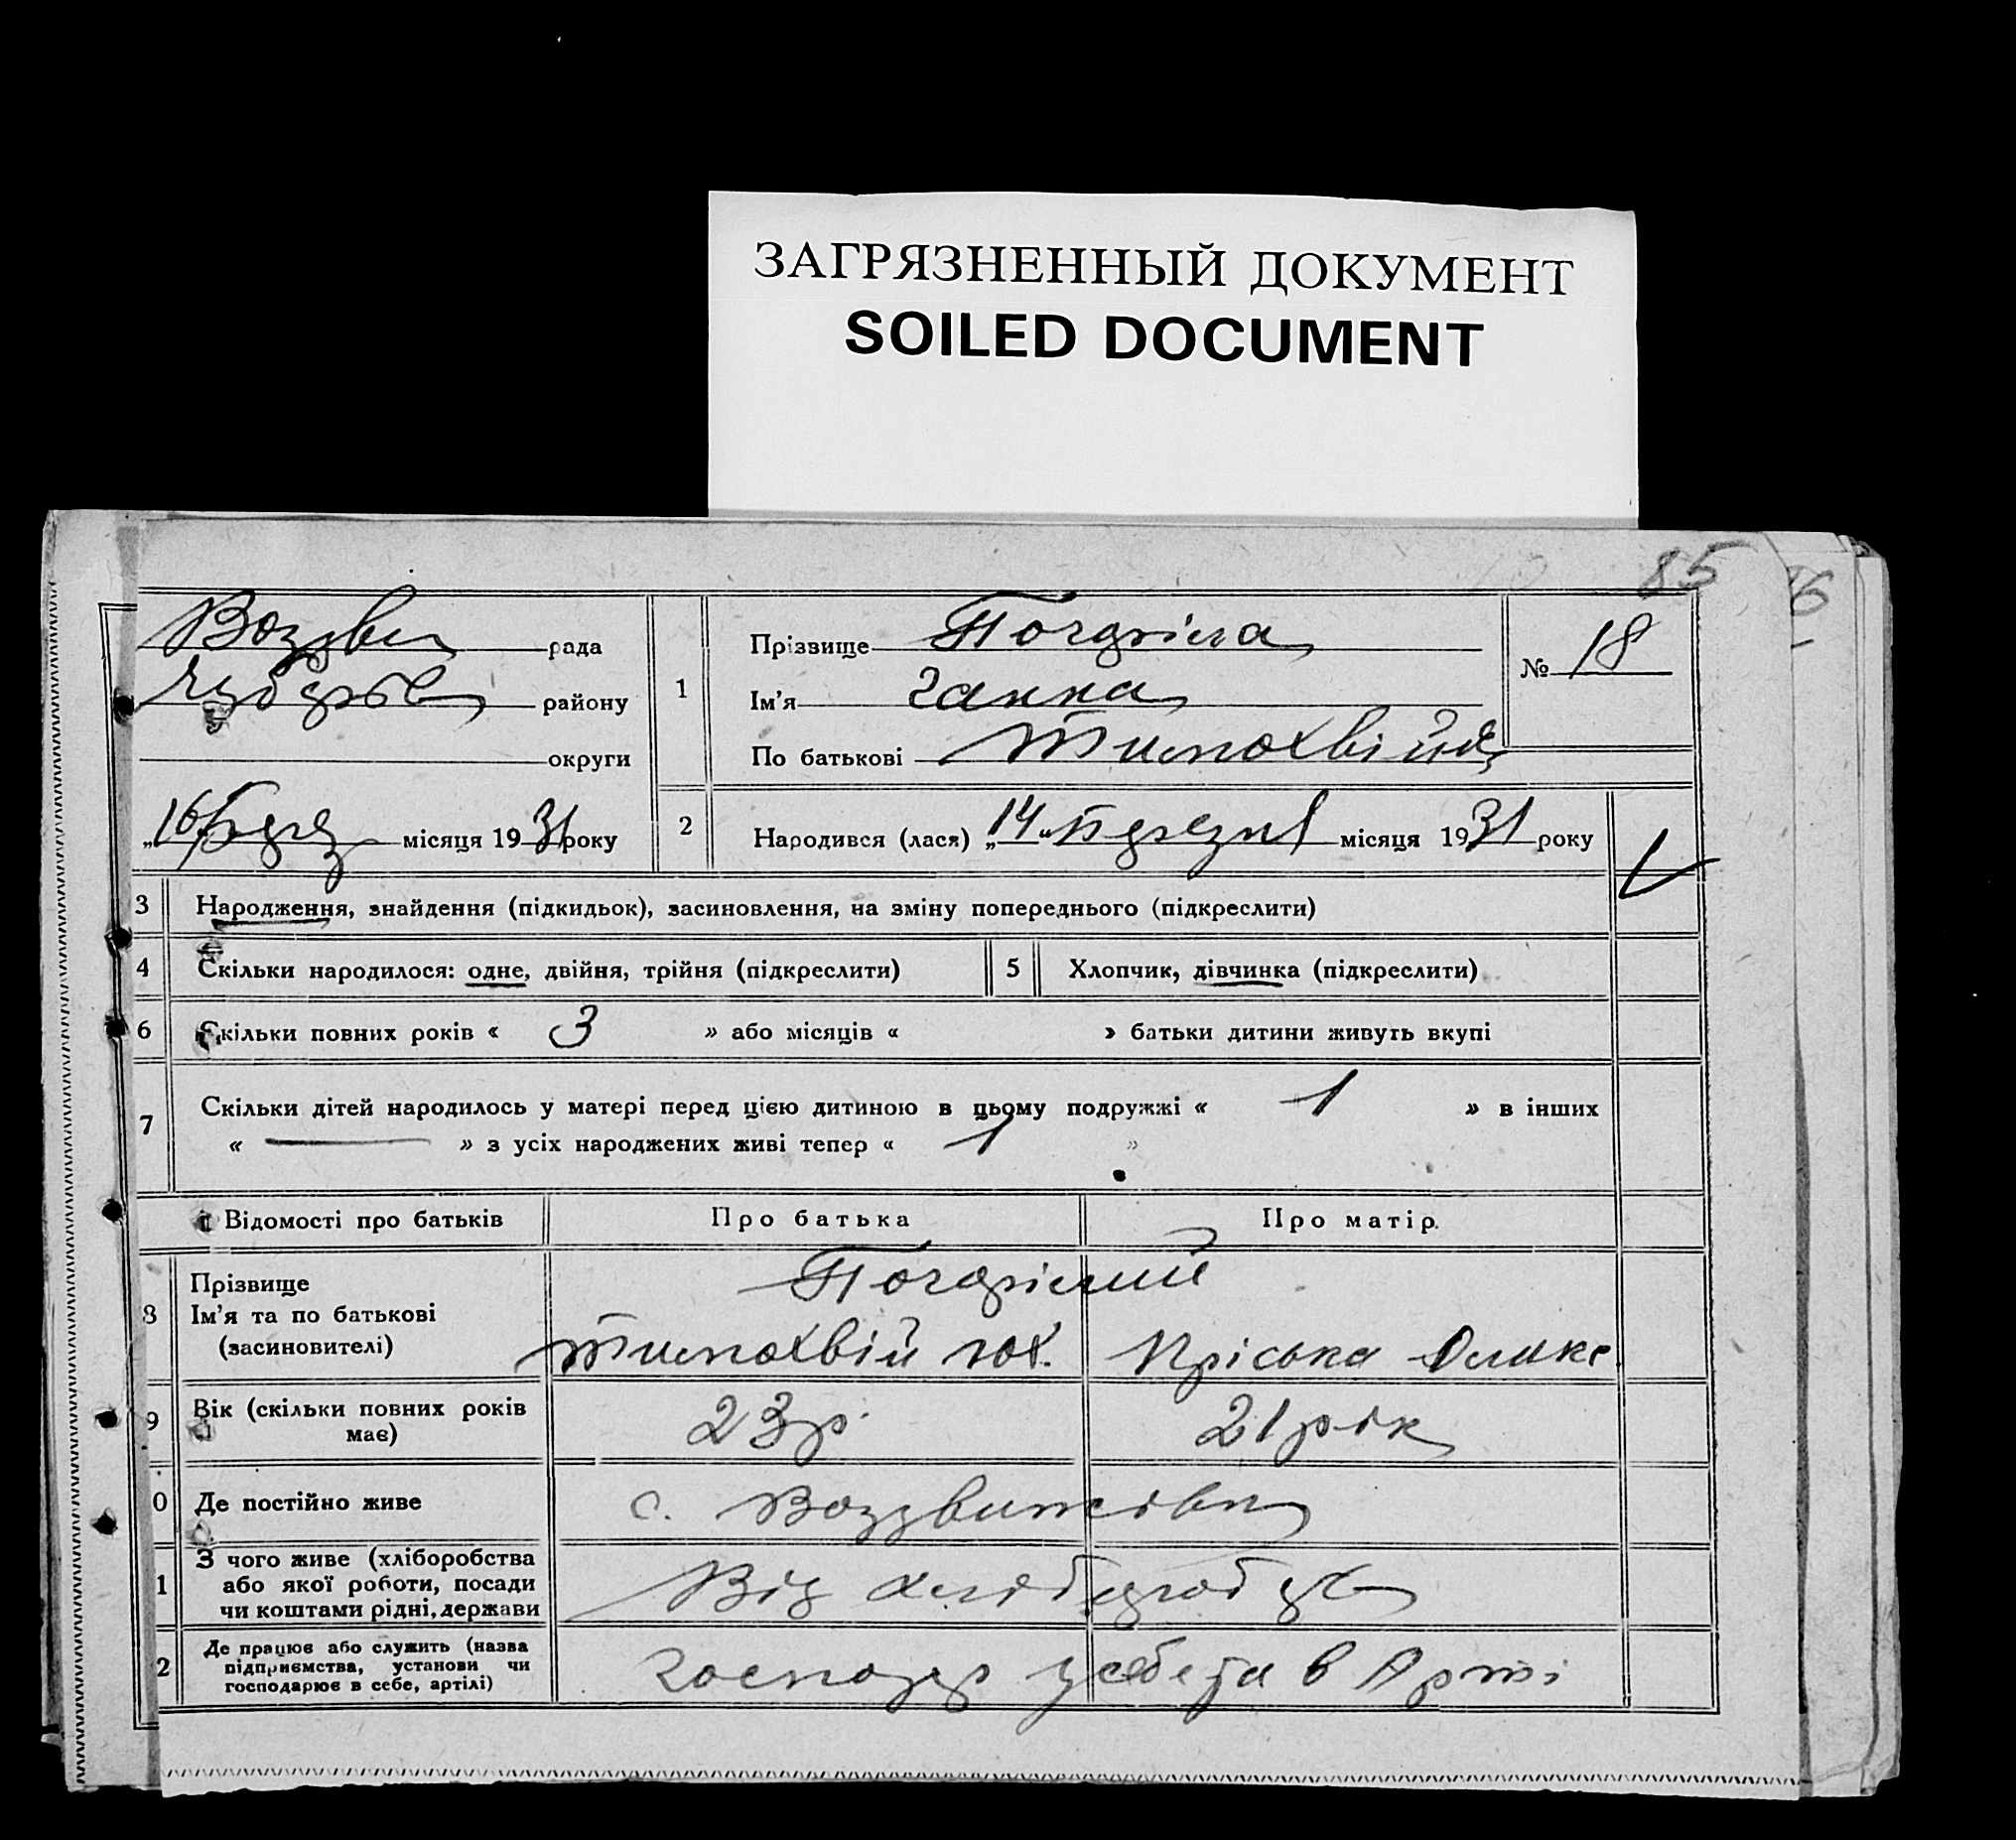 ЗАГРЯЗНЕННЫЙ ДОКУМЕНТ
SOILED DOCUMENT
85
6
рада
району
округи
„16 місяця 1931 року
1
Прізвище Погоріла
Ім'я Ганна
По батькові Тимохвій
№ 18
2 Народився (лася) „14„ місяця 1931 року
3 Народження, знайдення (підкидьок), засиновлення, на зміну попереднього (підкреслити)
4 Скільки народилося: одне, двійня, трійня (підкреслити) 5 Хлопчик, дівчинка (підкреслити)
6 Скільки повних років « 3 » або місяців « » батьки дитини живуть вкупі
7 Скільки дітей народилось у матері перед цією дитиною в цьому подружжі « 1 » в інших
« — » з усіх народжених живі тепер « 1 »
Відомості про батьків Про батька Про матір.
8 Прізвище Погорілий
Ім'я та по батькові
(засиновителі) Тимохвій Пріська
9 Вік (скільки повних років має) 23 р. 21 рік
0 Де постійно живе с. Воздвижівка
1 З чого живе (хліборобства
або якої роботи, посади
чи коштами рідні, держави Від
2 Де працює або служить (назва
підприємства, установи чи
господарює в себе, артілі) в Арті